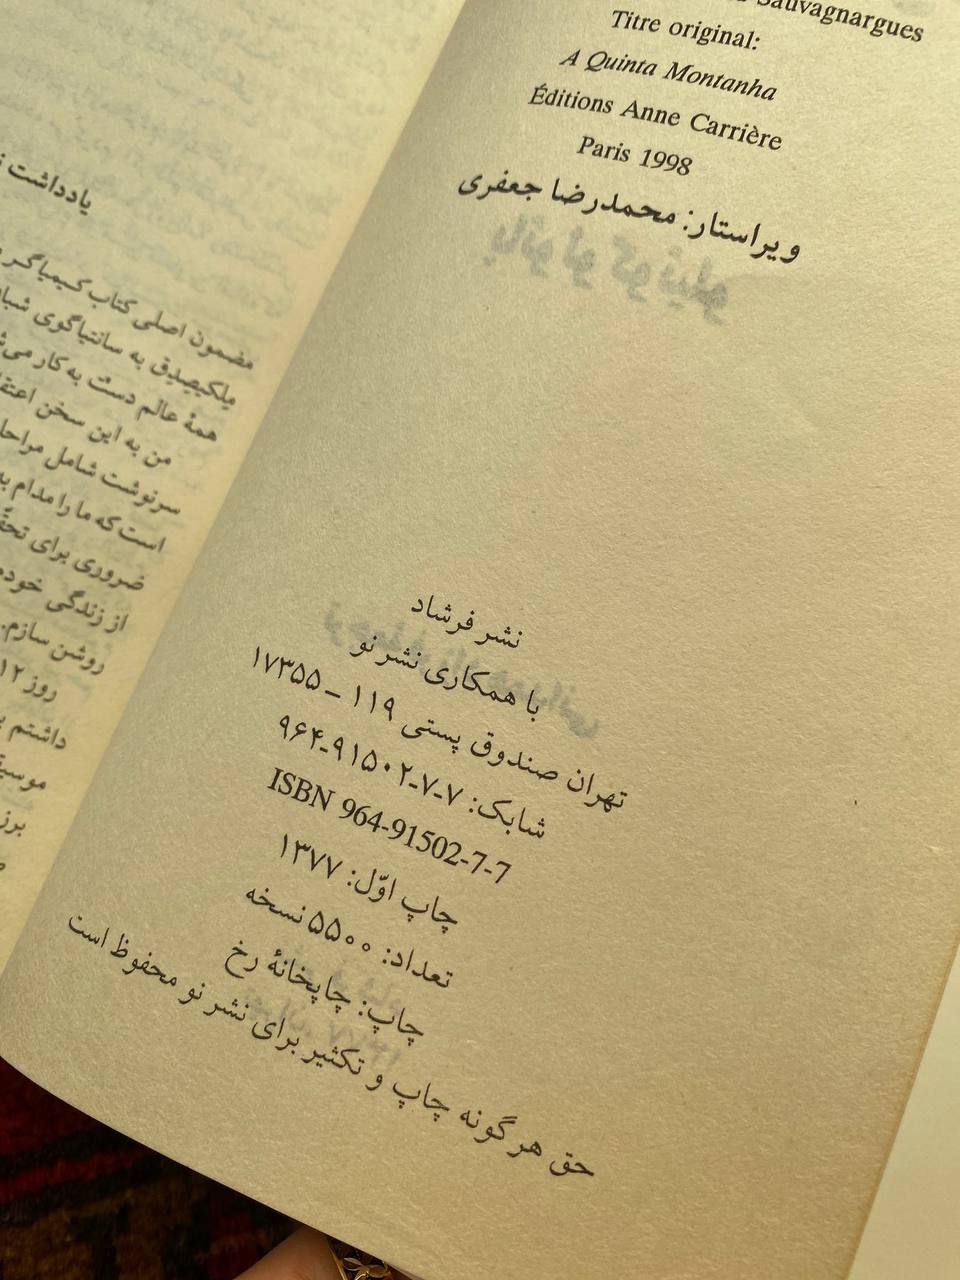 Sauvagnargues
Titre original:
A Quinta Montanha
Éditions Anne Carrière
Paris 1998
ویراستار: محمدرضا جعفری
نشر فرشاد
با همکاری نشر نو
تهران صندوق پستی ۱۱۹ – ۱۷۳۵۵
شابک: ۷-۷-۹۱۵۰۲-۹۶۴
ISBN 964-91502-7-7
چاپ اوّل: ۱۳۷۷
تعداد: ۵۵۰۰ نسخه
چاپ: چاپخانهٔ رخ
حق هرگونه چاپ و تکثیر برای نشر نو محفوظ است
یادداشت
مضمون اصلی کتاب کیمیاگر
مِلکیصِدِق به سانتیاگوی
همهٔ عالم دست به کار
من به این سخن
سرنوشت شامل
است که ما را مدام
ضروری برای
از زندگی
روشن سازم.
روز ۱۲
داشتم